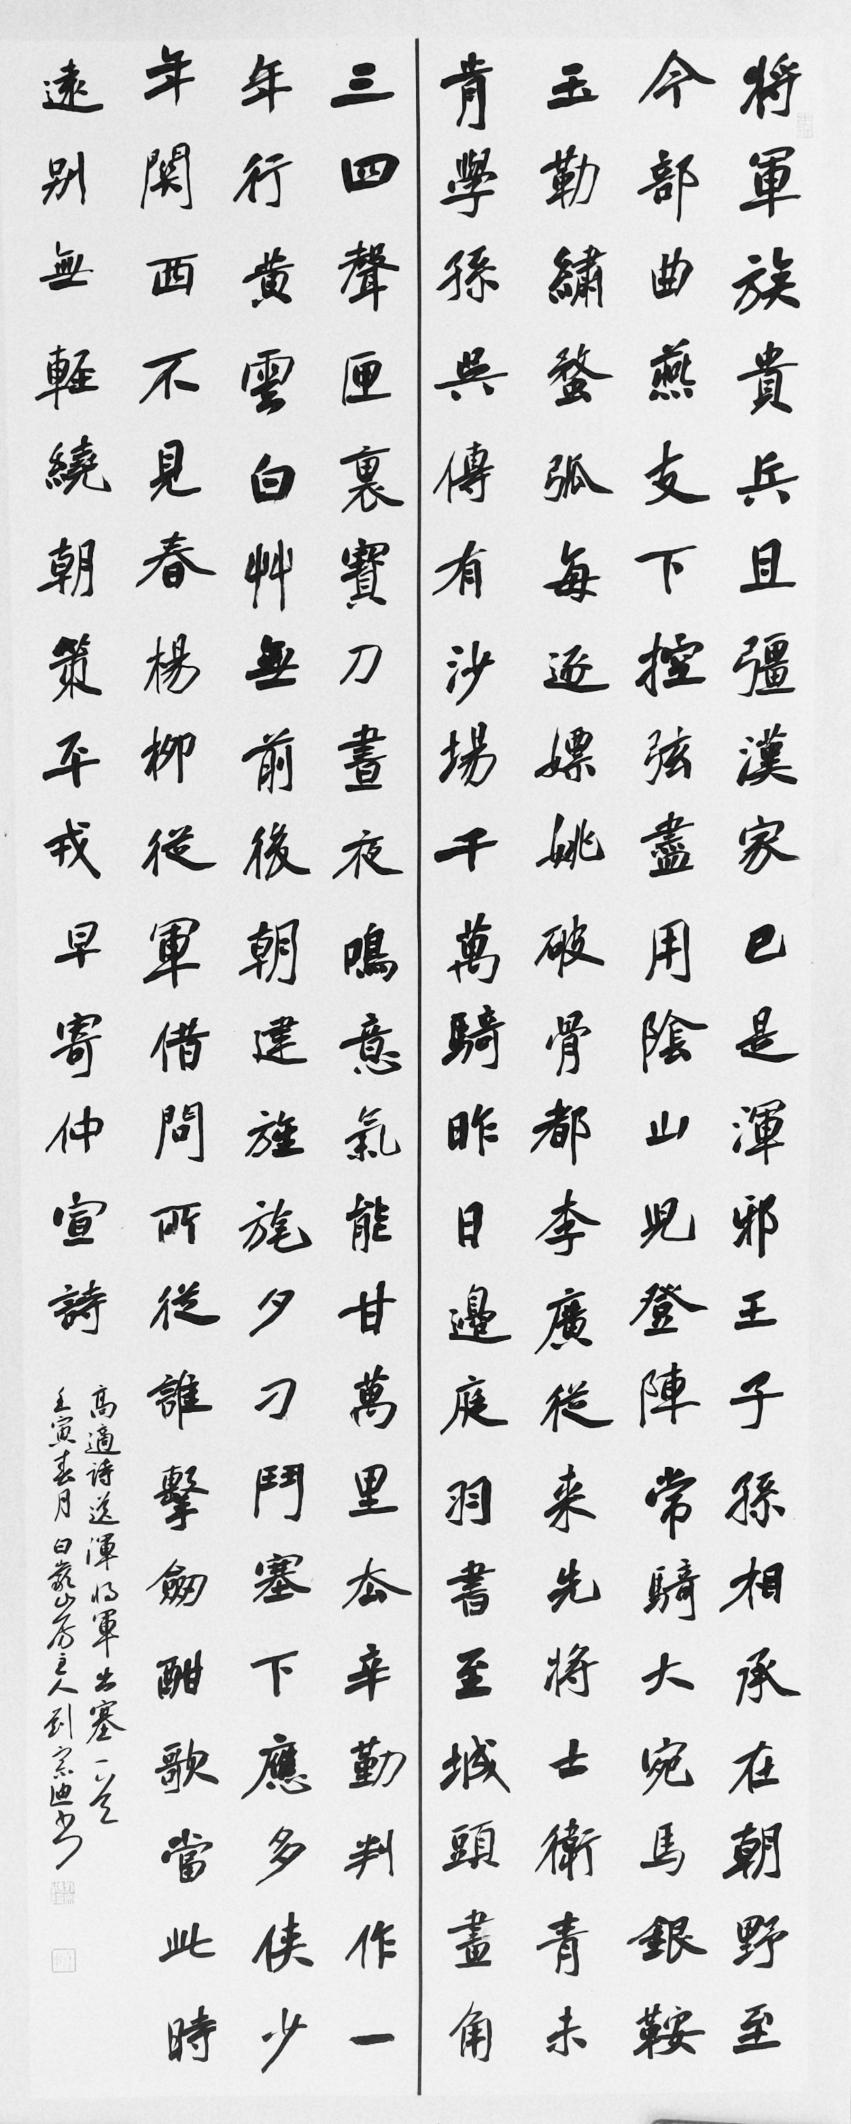 將軍族貴兵且彊漢家已是渾邪王子孫相承在朝野至
今部曲燕支下控弦盡用陰山兒登陣常騎大宛馬銀鞍
玉勒繡蝥弧每逐嫖姚破骨都李廣從来先將士衛青未
肯學孫吳傳有沙場千萬騎昨日邊庭羽書至城頭畫角
三四聲匣裏寶刀晝夜鳴意氣能甘萬里去辛勤判作一
年行黃雲白艸無前後朝建旌旄夕刁鬥塞下應多俠少
年關西不見春楊柳從軍借問所從誰擊劒酣歌當此時
遠別無輕繞朝策平戎早寄仲宣詩
高適詩送渾將軍出塞一首
壬寅春月白巖山房主人劉宗迪書